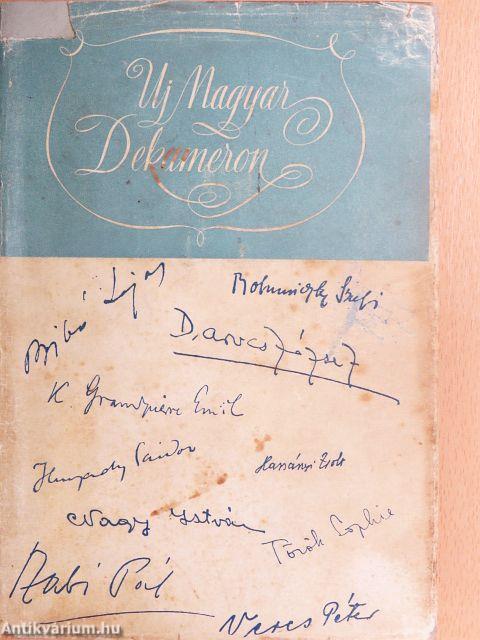 Uj Magyar
Dekameron
Bibó Lajos
Bohuniczky Szefi
Darvas József
K. Grandpierre Emil
Hunyady Sándor
Harsányi Zsolt
Nagy István
Török Sophie
Szabó Pál
Veres Péter
Antikvárium.hu